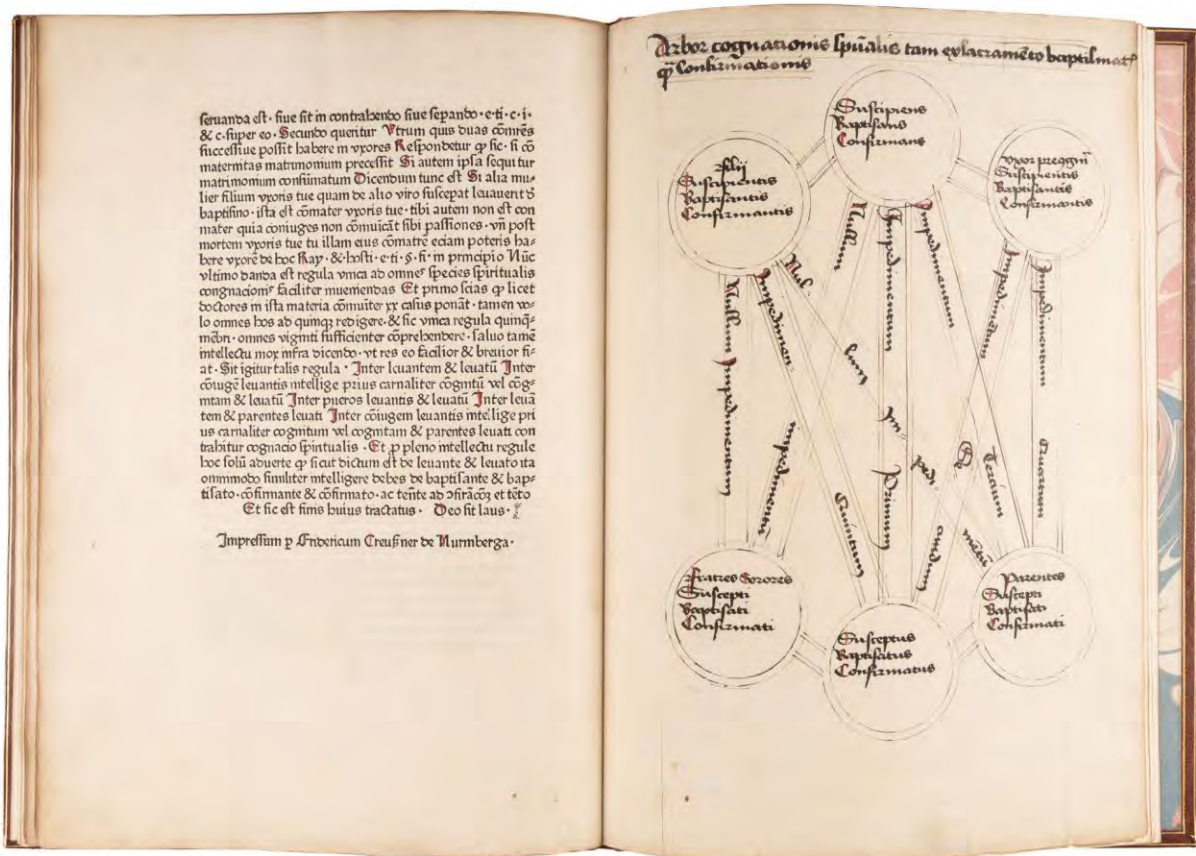 seruanda est · siue sit in contrahendo siue sepando · e · ti · c · i ·
& c · super eo · Secundo queritur Vtrum quis duas cōmr̄es
successiue possit habere in vxores Respondetur ꝙ sic · si cō
maternitas matrimonium precessit Si autem ipsa sequitur
matrimonium consūmatum Dicendum tunc est Si alia mu⸗
lier filium vxoris tue quam de alio viro suscepat leuauerit
baptismo · ista est cōmater vxoris tue · tibi autem non est con
mater quia coniuges non cōmuicāt sibi passiones · vn̄ post
mortem vxoris tue tu illam eius cōmatrē eciam poteris ha⸗
bere vxorē de hoc Ray · & hosti · e · ti · §· fi · in principio Nūc
vltimo danda est regula vnica ad omnes species spiritualis
congnacionis faciliter inueniendas Et primo scias ꝙ licet
doctores in ista materia cōmuīter xx casus ponāt · tamen vo⸗
lo omnes hos ad quinqꝫ redigere · & sic vnica regula quinq̄⸗
mēbri · omnes viginti sufficienter cōprehendere · saluo tamē
intellectu mox infra dicendo · vt res eo facilior & breuior fi⸗
at · Sit igitur talis regula · Inter leuantem & leuatū Inter
cōiugē leuantis intellige prius carnaliter cōgnitū vel cōg⸗
nitam & leuatū Inter pueros leuantis & leuatū Inter leuā
tem & parentes leuati Inter cōiugem leuantis intellige pri
us carnaliter cognitum vel cognitam & parentes leuati con
trahitur cognacio spiritualis · Et ꝓ pleno intellectu regule
hoc solū aduerte ꝙ sicut dictum est de leuante & leuato ita
omnimodo similiter intelligere debes de baptisante & bap⸗
tisato · cōfirmante & cōfirmato · ac tente ad ꝯfirācōꝫ et tēto
Et sic est finis huius tractatus · Deo sit laus ·
Impressum ꝑ Fridericum Creußner de Nurmberga ·
Arbor cognationis spūalis tam ex sacramēto baptismatꝭ
ꝙ̄ Confirmationis
Suscipiens
Baptisans
Confirmans
Filij
Suscipientis
Baptisantis
Confirmantis
Vxor
Suscipientis
Baptisantis
Confirmantis
Nullum Impedimentum
Impedimentum Quintum
Nullum Impedimentū
Nullum impedimentum
Impedimentum Primum
Impedimentum Terciūm
Impedimentum Secundum
Impedimentum Quartum
Fratres Sorores
Suscepti
Baptisati
Confirmati
Susceptus
Baptisatus
Confirmatus
Parentes
Suscepti
Baptisati
Confirmati